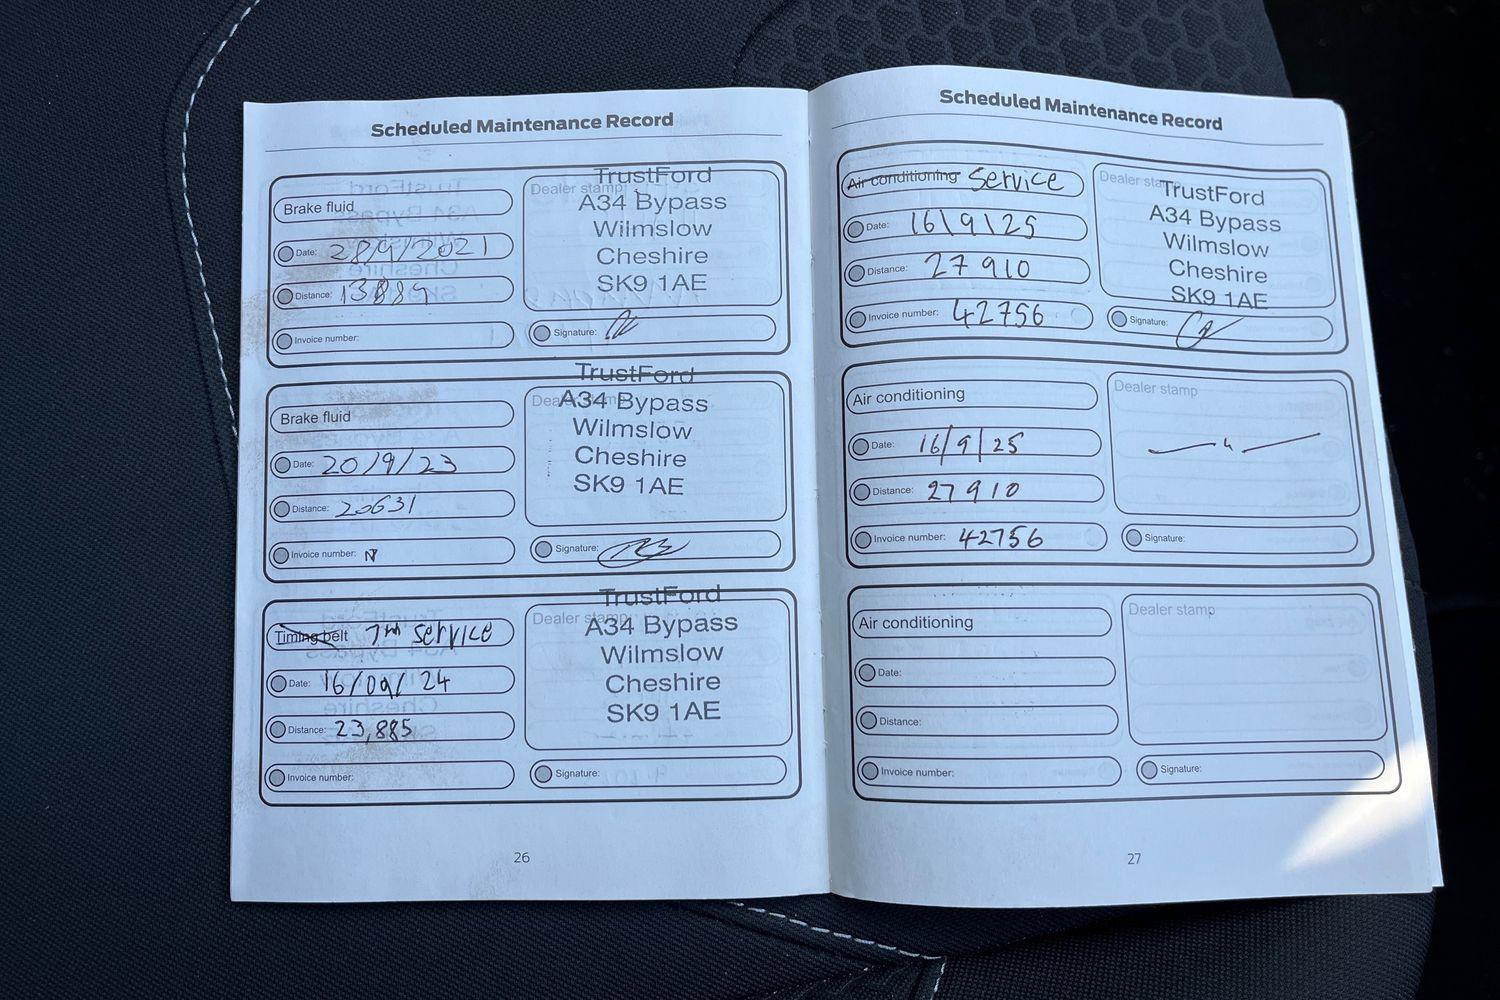 Scheduled Maintenance Record
Brake fluid
Date: 28/9/2021
Distance: 13889
Invoice number:
Dealer stamp
TrustFord
A34 Bypass
Wilmslow
Cheshire
SK9 1AE
Signature:
Brake fluid
Date: 20/9/23
Distance: 20631
Invoice number: N
Dealer stamp
TrustFord
A34 Bypass
Wilmslow
Cheshire
SK9 1AE
Signature:
Timing belt 7th Service
Date: 16/09/24
Distance: 23,885
Invoice number:
Dealer stamp
TrustFord
A34 Bypass
Wilmslow
Cheshire
SK9 1AE
Signature:
26
Scheduled Maintenance Record
Air conditioning Service
Date: 16\9\25
Distance: 27910
Invoice number: 42756
Dealer stamp
TrustFord
A34 Bypass
Wilmslow
Cheshire
SK9 1AE
Signature:
Air conditioning
Date: 16/9/25
Distance: 27910
Invoice number: 42756
Dealer stamp
— " —
Signature:
Air conditioning
Date:
Distance:
Invoice number:
Dealer stamp
Signature:
27